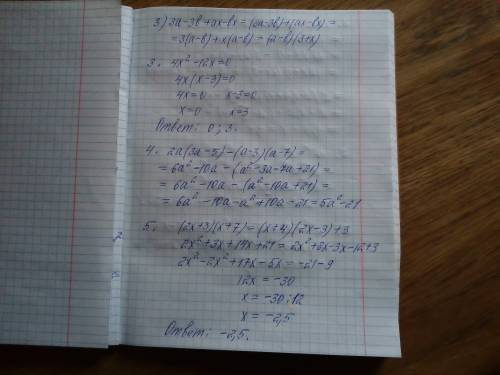 3) 3a-3b+ax-bx=(3a-3b)+(ax-bx)=
=3(a-b)+x(a-b)=(a-b)(3+x)
3. 4x²-12x=0
4x(x-3)=0
4x=0 x-3=0
x=0 x=3
Ответ: 0; 3.
4. 2a(3a-5)-(a-3)(a-7)=
=6a²-10a-(a²-3a-7a+21)=
=6a²-10a-(a²-10a+21)=
=6a²-10a-a²+10a-21=5a²-21
5. (2x+3)(x+7)=(x+4)(2x-3)+3
2x²+3x+14x+21=2x²+8x-3x-12+3
2x²-2x²+17x-5x=-21-9
12x=-30
x=-30:12
x=-2,5
Ответ: -2,5.